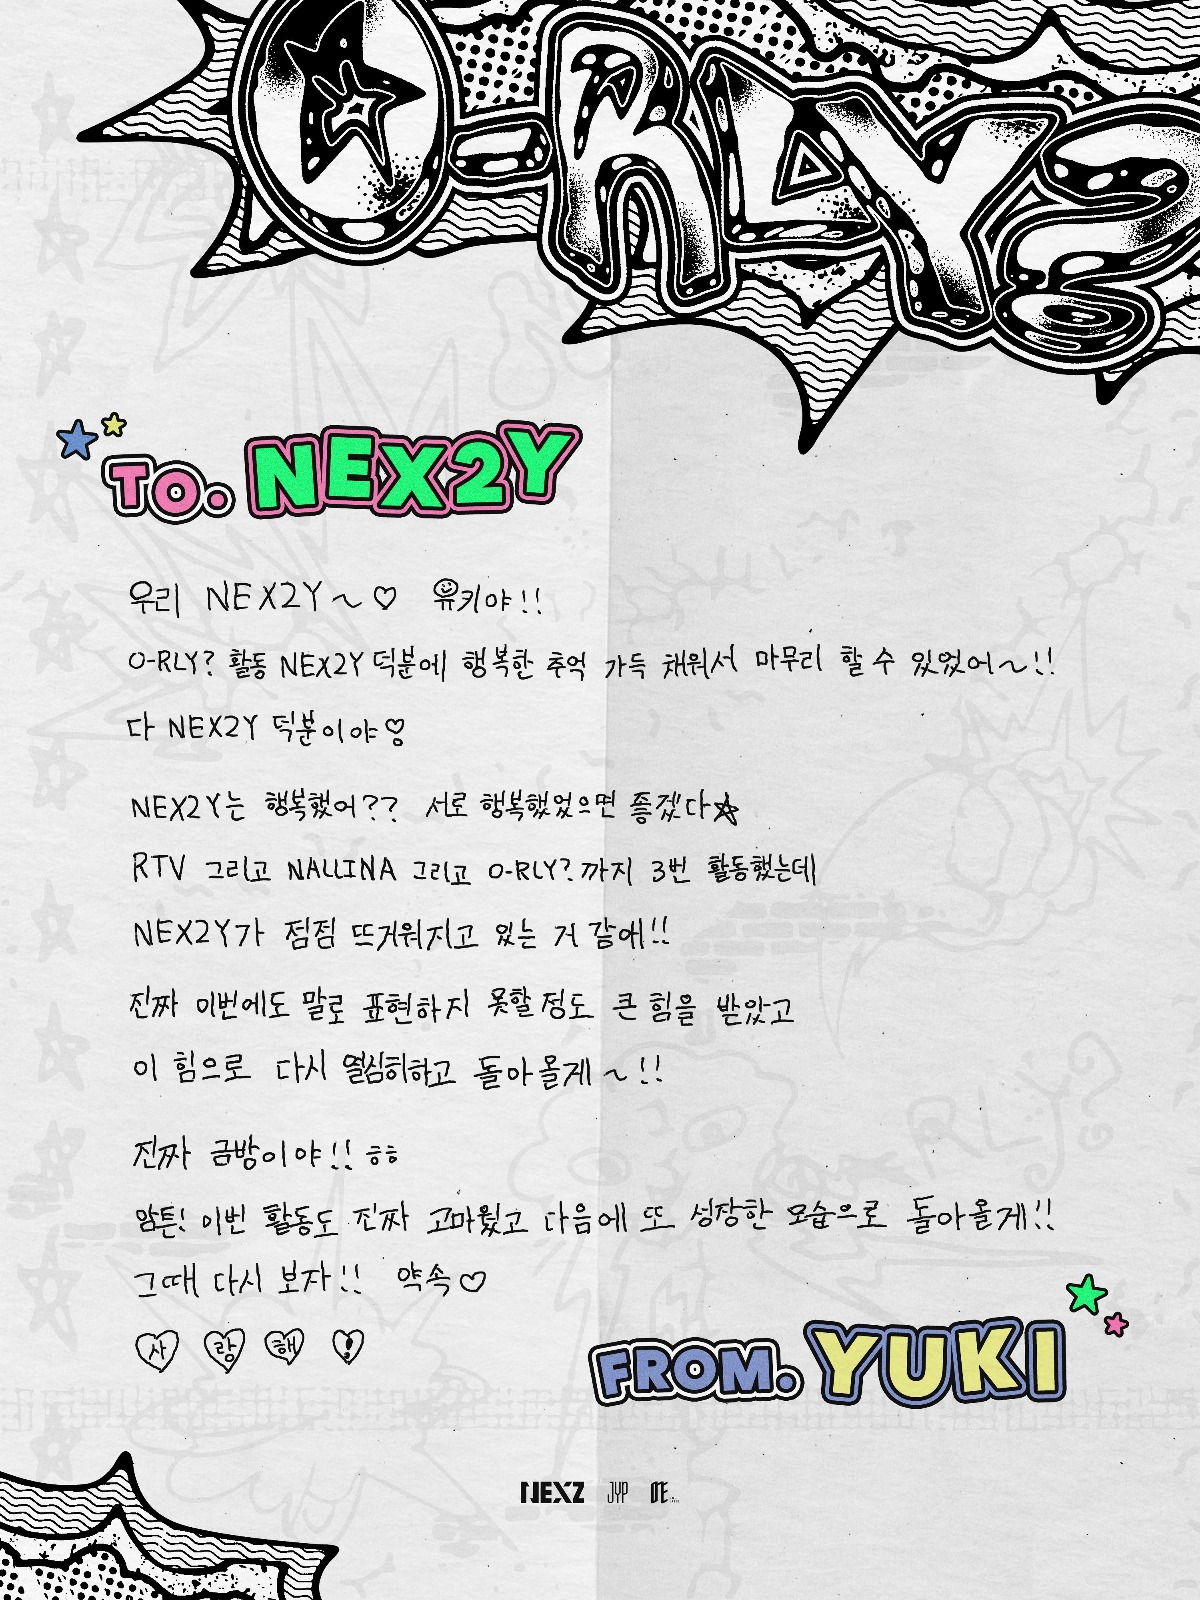 O-RLY?
TO. NEX2Y
우리 NEX2Y~♡ 유키야!!
O-RLY? 활동 NEX2Y 덕분에 행복한 추억 가득 채워서 마무리 할 수 있었어~!!
다 NEX2Y 덕분이야♡
NEX2Y는 행복했어?? 서로 행복했었으면 좋겠다☆
RTV 그리고 NALLINA 그리고 O-RLY?까지 3번 활동했는데
NEX2Y가 점점 뜨거워지고 있는 거 같애!!
진짜 이번에도 말로 표현하지 못할 정도 큰 힘을 받았고
이 힘으로 다시 열심히하고 돌아올게~!!
진짜 금방이야!! ㅎㅎ
암튼! 이번 활동도 진짜 고마웠고 다음에 또 성장한 모습으로 돌아올게!!
그때 다시 보자!! 약속♡
사 랑 해 !
FROM. YUKI
NEXZ JYP